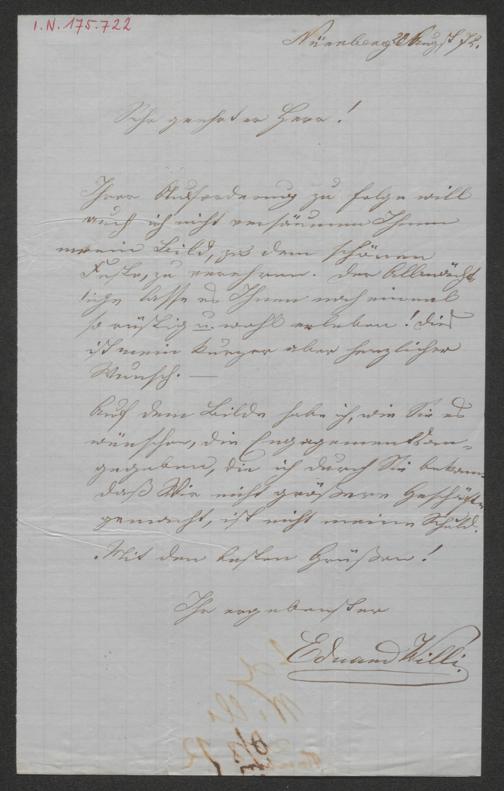 I.N. 175.722
Nürnberg 28 Augst 72.
Sehr geehrter Herr!
Ihrer Aufforderung zu folge will
auch ich nicht versäumen Ihnen
mein Bild, zu dem schönen
Feste, zu verehren. Der Allmächt
ige lasse es Ihnen noch einmal
so rüstig u. wohl erleben! Dies
ist mein kurzer aber herzlicher
Wunsch. —
Auf dem Bilde habe ich, wie Sie es
wünschen, die Engagements an-
gegeben, die ich durch Sie bekam.
daß Wir nicht größere Geschäfte
gemacht, ist nicht meine Schuld.
Mit den besten Grüßen!
Ihr ergebenster
Eduard Willi.